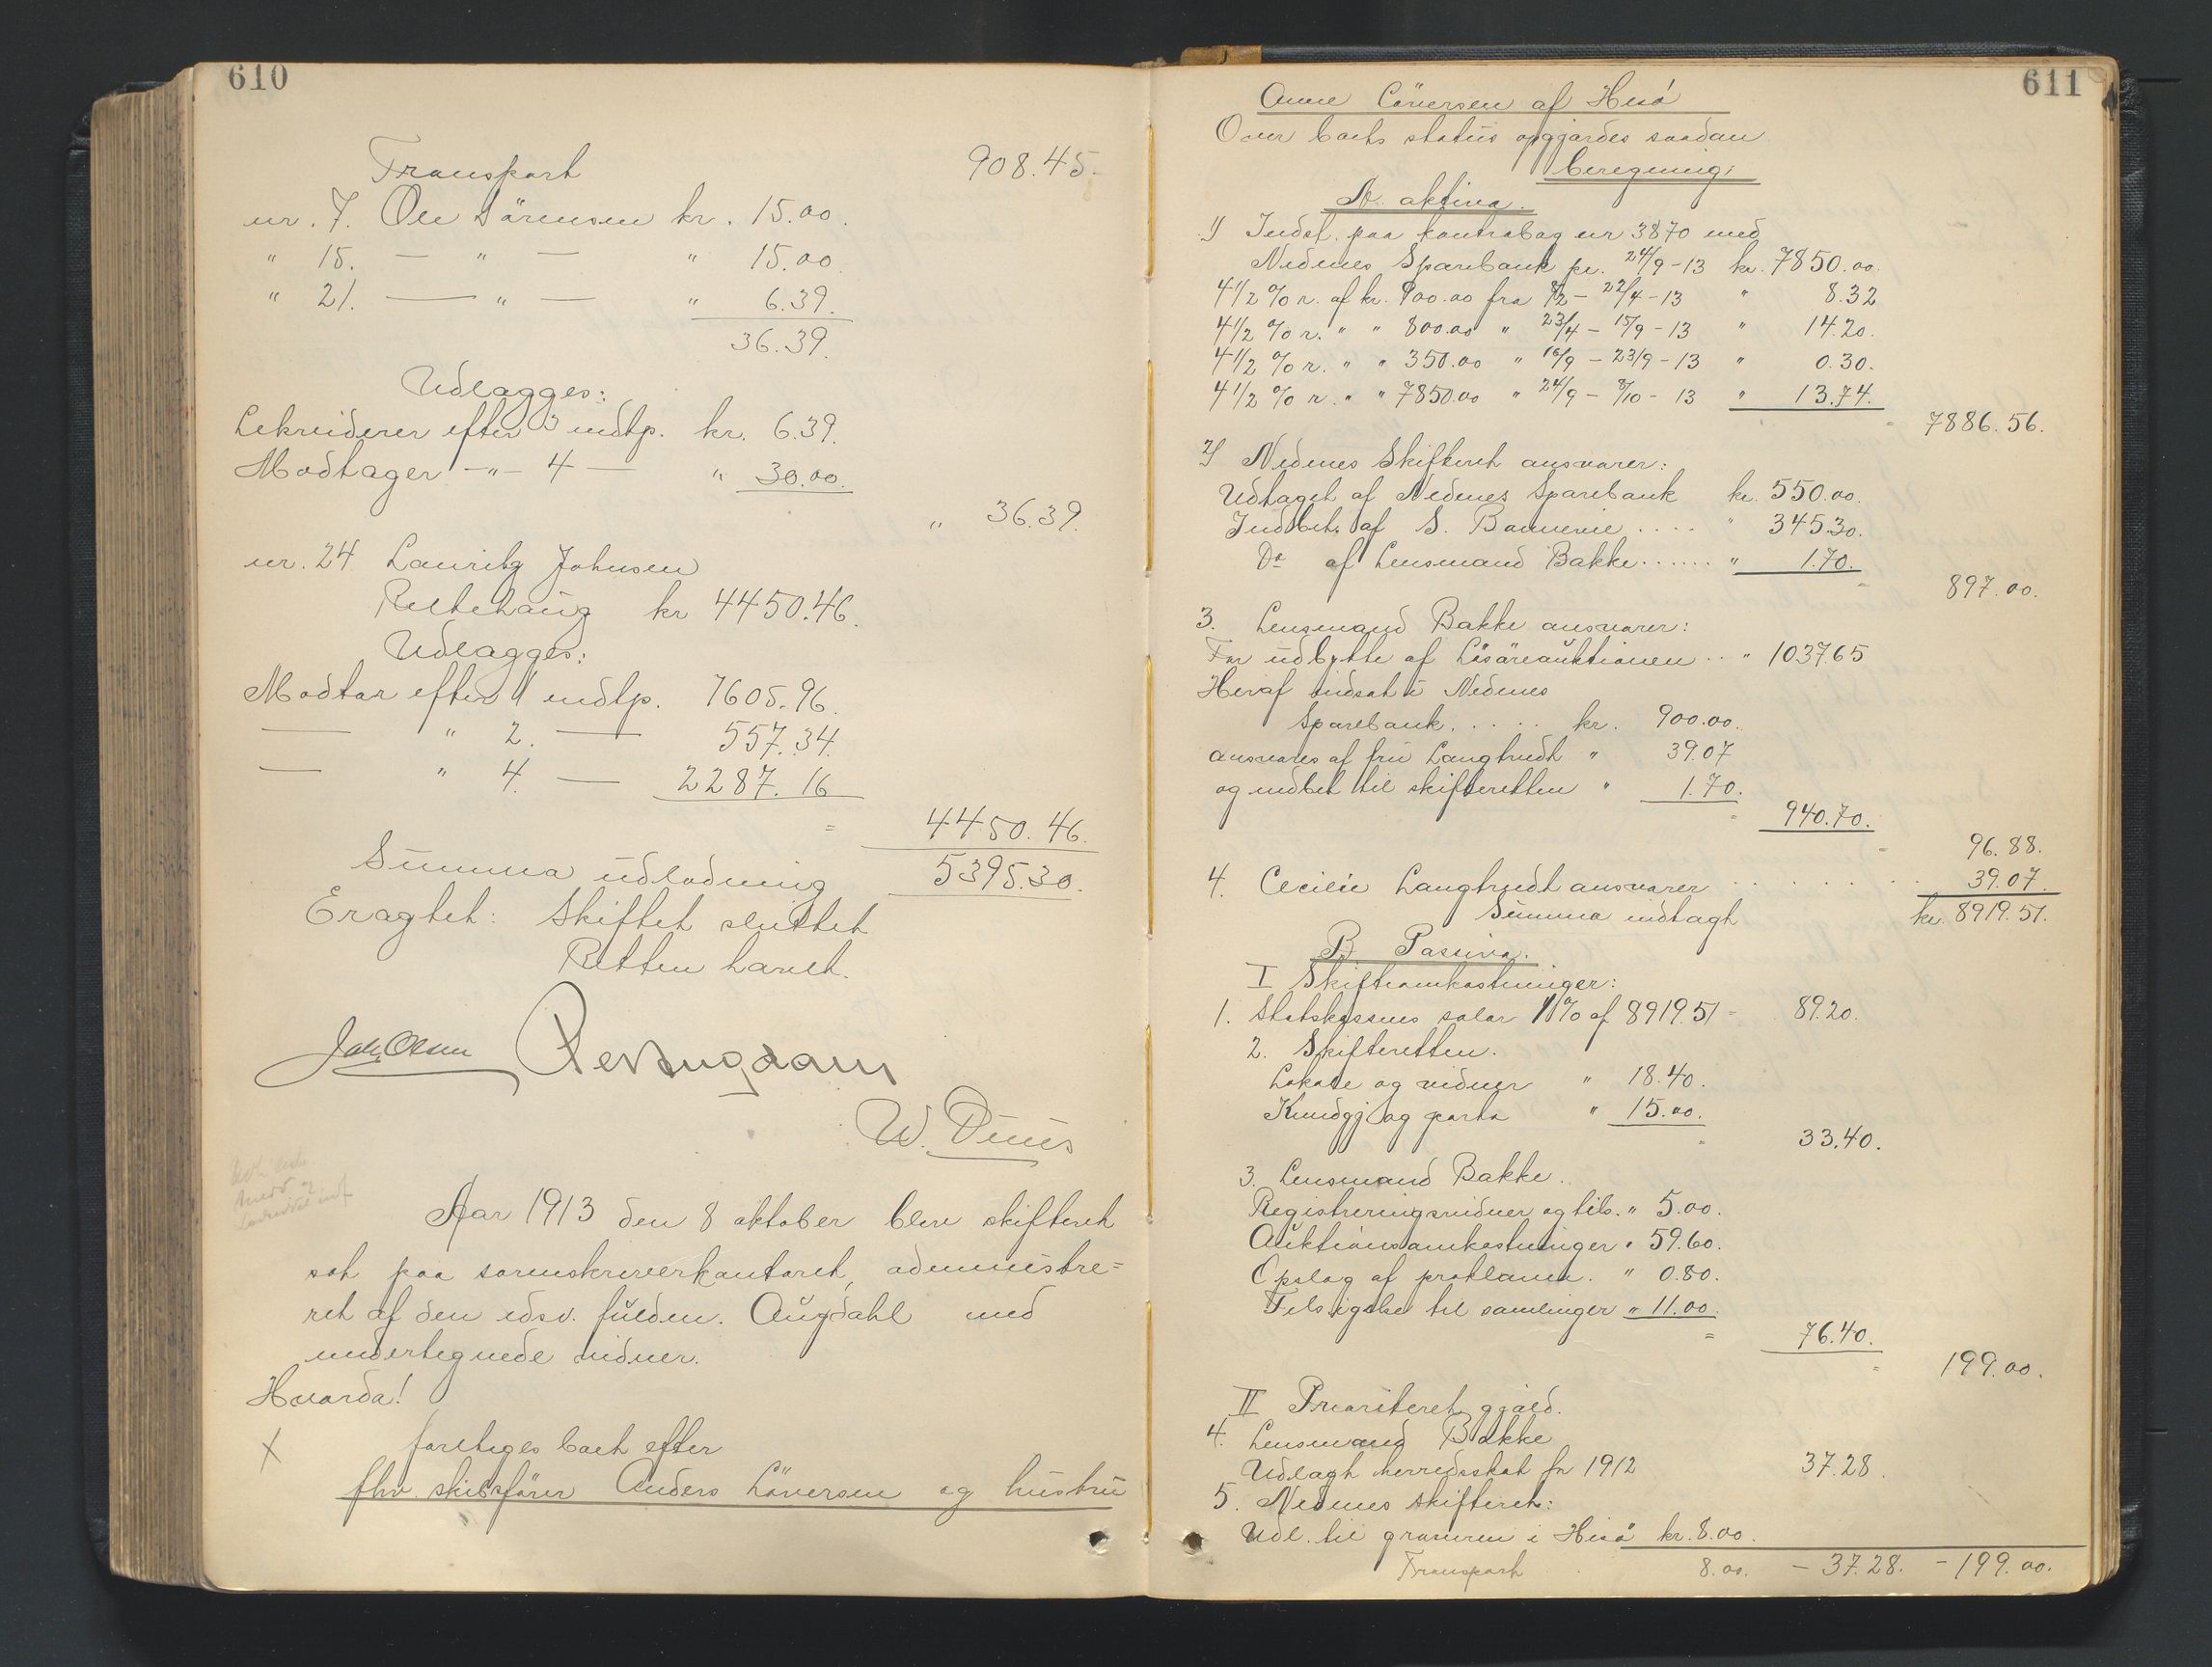 610
Transport 908.45.
nr. 7. Ole Sörensen kr. 15.00.
" 15. — " — " 15.00
" 21. — " — " 6.39.
36.39.
Udlægges:
Lekreiderer efter 3 indtp. kr. 6.39.
Modtager —"— 4 — " 30.00.
" 36.39.
nr. 24 Lauritz Johnsen
Reltehaug kr 4450.46.
Udlægges:
Modtar efter 1 indtp. 1605.96.
— " 2. — 557.34.
— " 4. — 2287.16
= 4450.46.
Summa udlodning 5395.30.
Eragtet: Skiftet sluttet
Retten hævet.
Joh. Olsen
W. Duus
Aar 1913 den 8 oktober blev skifteret
sat paa sorenskriverkontoret, administre=
ret af den edsv. fuldm. Augdahl med
undertegnede vidner.
Hvorda!
X foretages boet efter
fhv. skibsfører Anders Löversen og hustru
611
Anne Löversen af Hisö
Over boets status opgjordes saadan
beregning:
A. aktiva.
1) Indst. paa kontrabog nr 3870 med
Nedenes Sparebank pr. 24/9-13 kr. 7850.00
4 1/2 % r. af kr. 900.00 fra 8/2 - 22/4-13 " 8.32
4 1/2 % r. " " 800.00 " 23/4 - 15/9-13 " 14.20.
4 1/2 % r. " " 350.00 " 16/9 - 23/9-13 " 0.30.
4 1/2 % r. " " 7850.00 " 24/9 - 8/10-13 " 13.74.
" 7886.56.
2) Nedenes Skifteret ansvarer:
Udtaget af Nedenes Sparebank kr. 550.00.
Indbet. af S. Bannevie .... " 345.30.
Do af Lensmand Bakke...... " 1.70.
" 897.00.
3. Lensmand Bakke ansvarer:
For udbytte af Lösöreauktionen .. " 1037.65
Heraf indsat i Nedenes
Sparebank..... kr. 900.00.
ansvares af fru Langtvedt " 39.07
og indbet til skifteretten " 1.70.
" 940.70.
" 96.88.
4. Cecilie Langtvedt ansvarer ...... 39.07.
Summa indtægt kr. 8919.51.
B Passiva.
I Skifteomkostninger:
1. Statskassens salær 1% af 8919.51 = 89.20.
2. Skifteretten.
Lokale og vidner " 18.40.
Kundgj. og porto " 15.00.
" 33.40.
3. Lensmand Bakke.
Registreringsvidner og tils. " 5.00.
Auktionsomkostninger " 59.60.
Opslag af proklama. " 0.80.
Tilsigelse til samlinger " 11.00.
= 76.40.
" 199.00.
II Prioriteret gjæld.
4. Lensmand Bakke
Udlagt herredsskat for 1912 37.28.
5. Nedenes skifteret:
Udl. til graveren i Hisö kr. 8.00.
Transport 8.00. - 37.28. - 199.00.